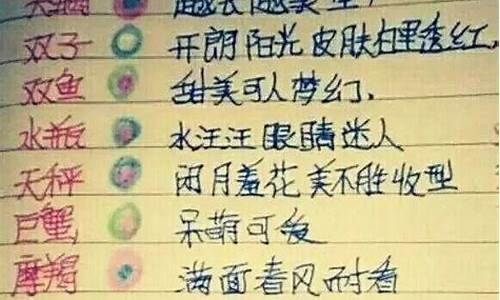 双子 开朗阳光皮肤白里透红,
双鱼 甜美可人梦幻,
水瓶 水汪汪眼睛迷人
天秤 闭月羞花美不胜收型
巨蟹 呆萌可爱
摩羯 满面春风耐看